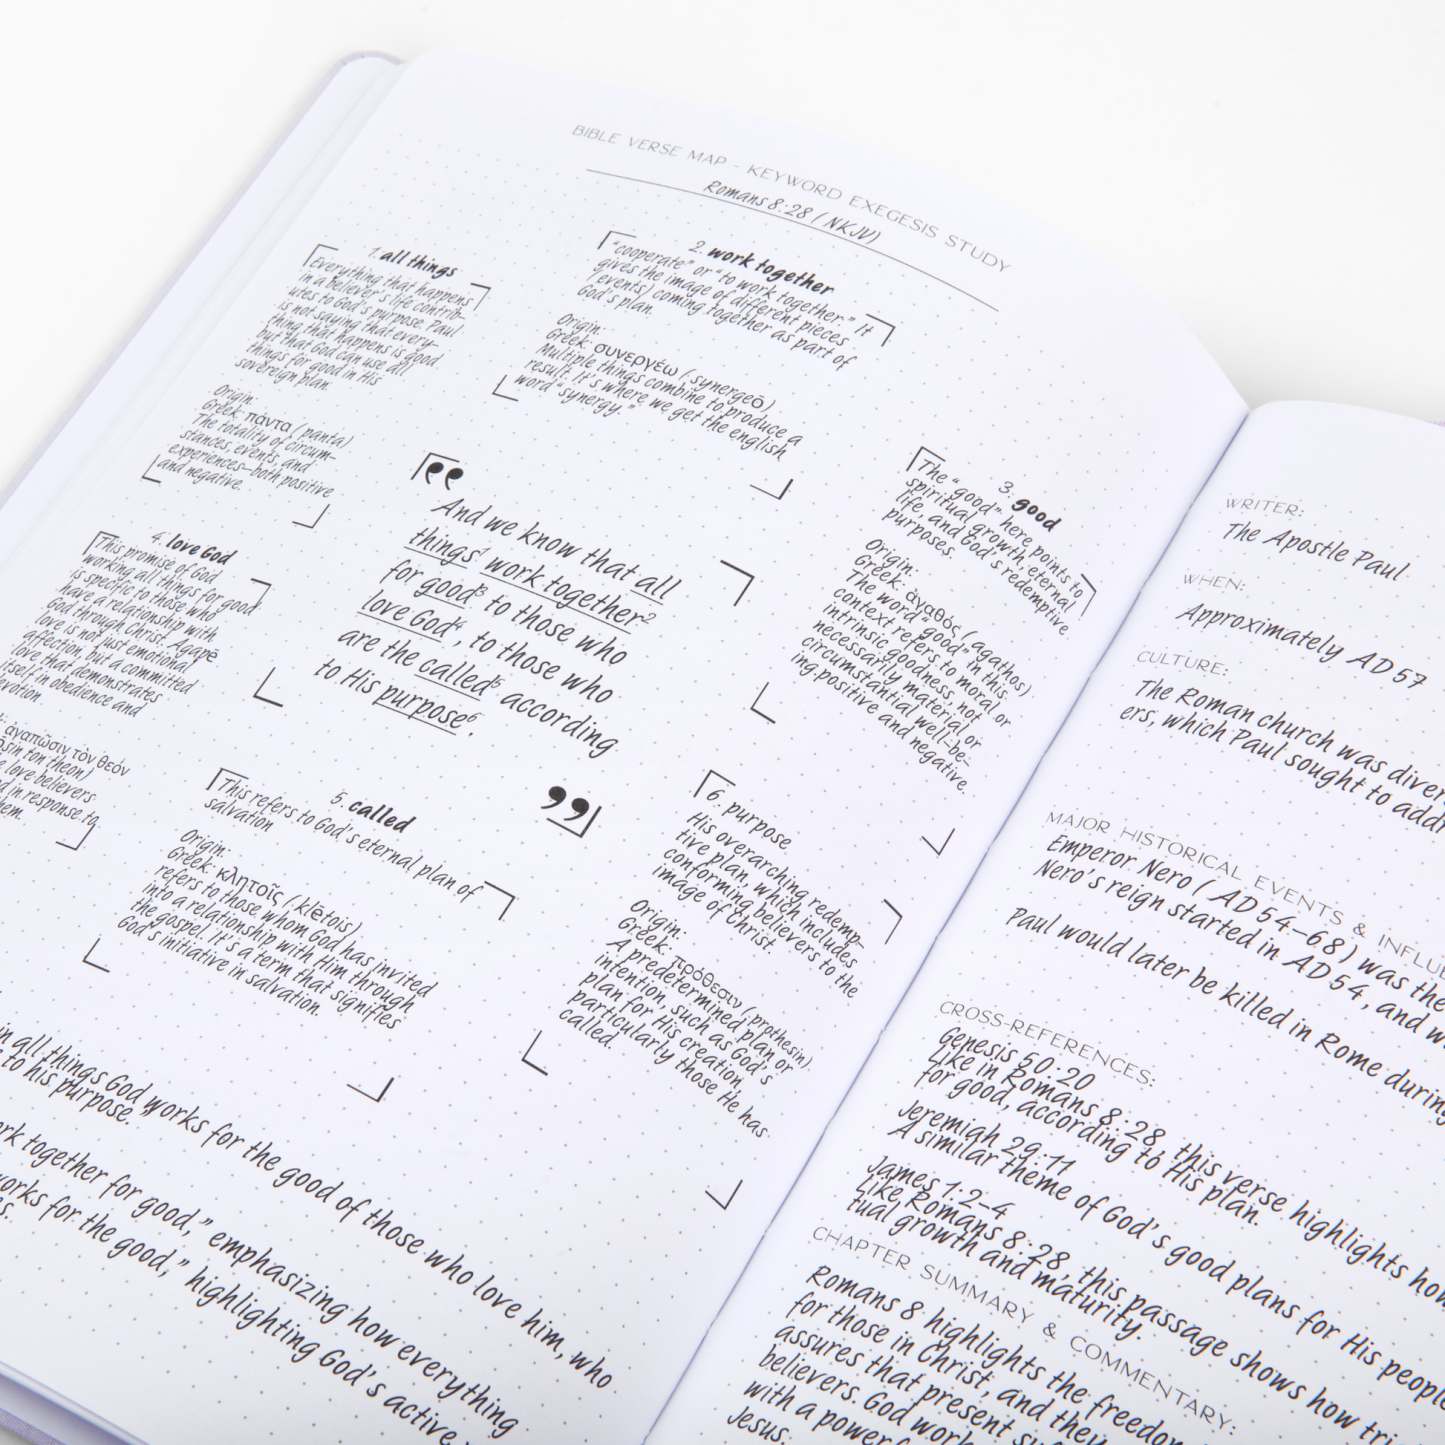 BIBLE VERSE MAP - KEYWORD EXEGESIS STUDY
Romans 8:28 (NKJV)
1. all things
Everything that happens
in a believer's life contrib-
utes to God's purpose. Paul
is not saying that every-
thing that happens is good
but that God can use all
things for good in His
sovereign plan.
Origin:
Greek: πάντα (panta)
The totality of circum-
stances, events, and
experiences—both positive
and negative.
2. work together
"cooperate" or "to work together." It
gives the image of different pieces
(events) coming together as part of
God's plan.
Origin:
Greek: συνεργέω (synergeō)
Multiple things combine to produce a
result. It's where we get the english
word "synergy."
3. good
The "good" here points to
spiritual growth, eternal
life, and God's redemptive
purposes.
Origin:
Greek: ἀγαθός (agathos)
The word "good" in this
context refers to moral or
intrinsic goodness, not
necessarily material or
circumstantial well-be-
ing.positive and negative.
“
And we know that all
things¹ work together²
for good³ to those who
love God⁴, to those who
are the called⁵ according
to His purpose⁶.
”
4. love God
This promise of God
working all things for good
is specific to those who
have a relationship with
God through Christ. Agapē
love is not just emotional
affection, but a committed
love that demonstrates
itself in obedience and
ἀγαπῶσιν τὸν θεόν
ton theon)
love believers
in response to
5. called
This refers to God's eternal plan of
salvation
Origin:
Greek: κλητοῖς (klētois)
refers to those whom God has invited
into a relationship with Him through
the gospel. It's a term that signifies
God's initiative in salvation.
6. purpose
His overarching redemp-
tive plan, which includes
conforming believers to the
image of Christ.
Origin:
Greek: πρόθεσιν (prothesin)
A predetermined plan or
intention, such as God's
plan for His creation,
particularly those He has
called.
in all things God works for the good of those who love him, who
to his purpose."
together for good," emphasizing how everything
works for the good," highlighting God's active
WRITER:
The Apostle Paul
WHEN:
Approximately AD 57
CULTURE:
The Roman church was
ers, which Paul sought to
MAJOR HISTORICAL EVENTS &
Emperor Nero (AD 54–68) was the
Nero's reign started in AD 54, and
Paul would later be killed in Rome during
CROSS-REFERENCES:
Genesis 50:20
Like in Romans 8:28, this verse highlights
for good, according to His plan.
Jeremiah 29:11
A similar theme of God's good plans for His
James 1:2–4
Like Romans 8:28, this passage shows how
tual growth and maturity.
CHAPTER SUMMARY & COMMENTARY:
Romans 8 highlights the
for those in Christ, and
assures that present
believers. God
with a
Jesus.